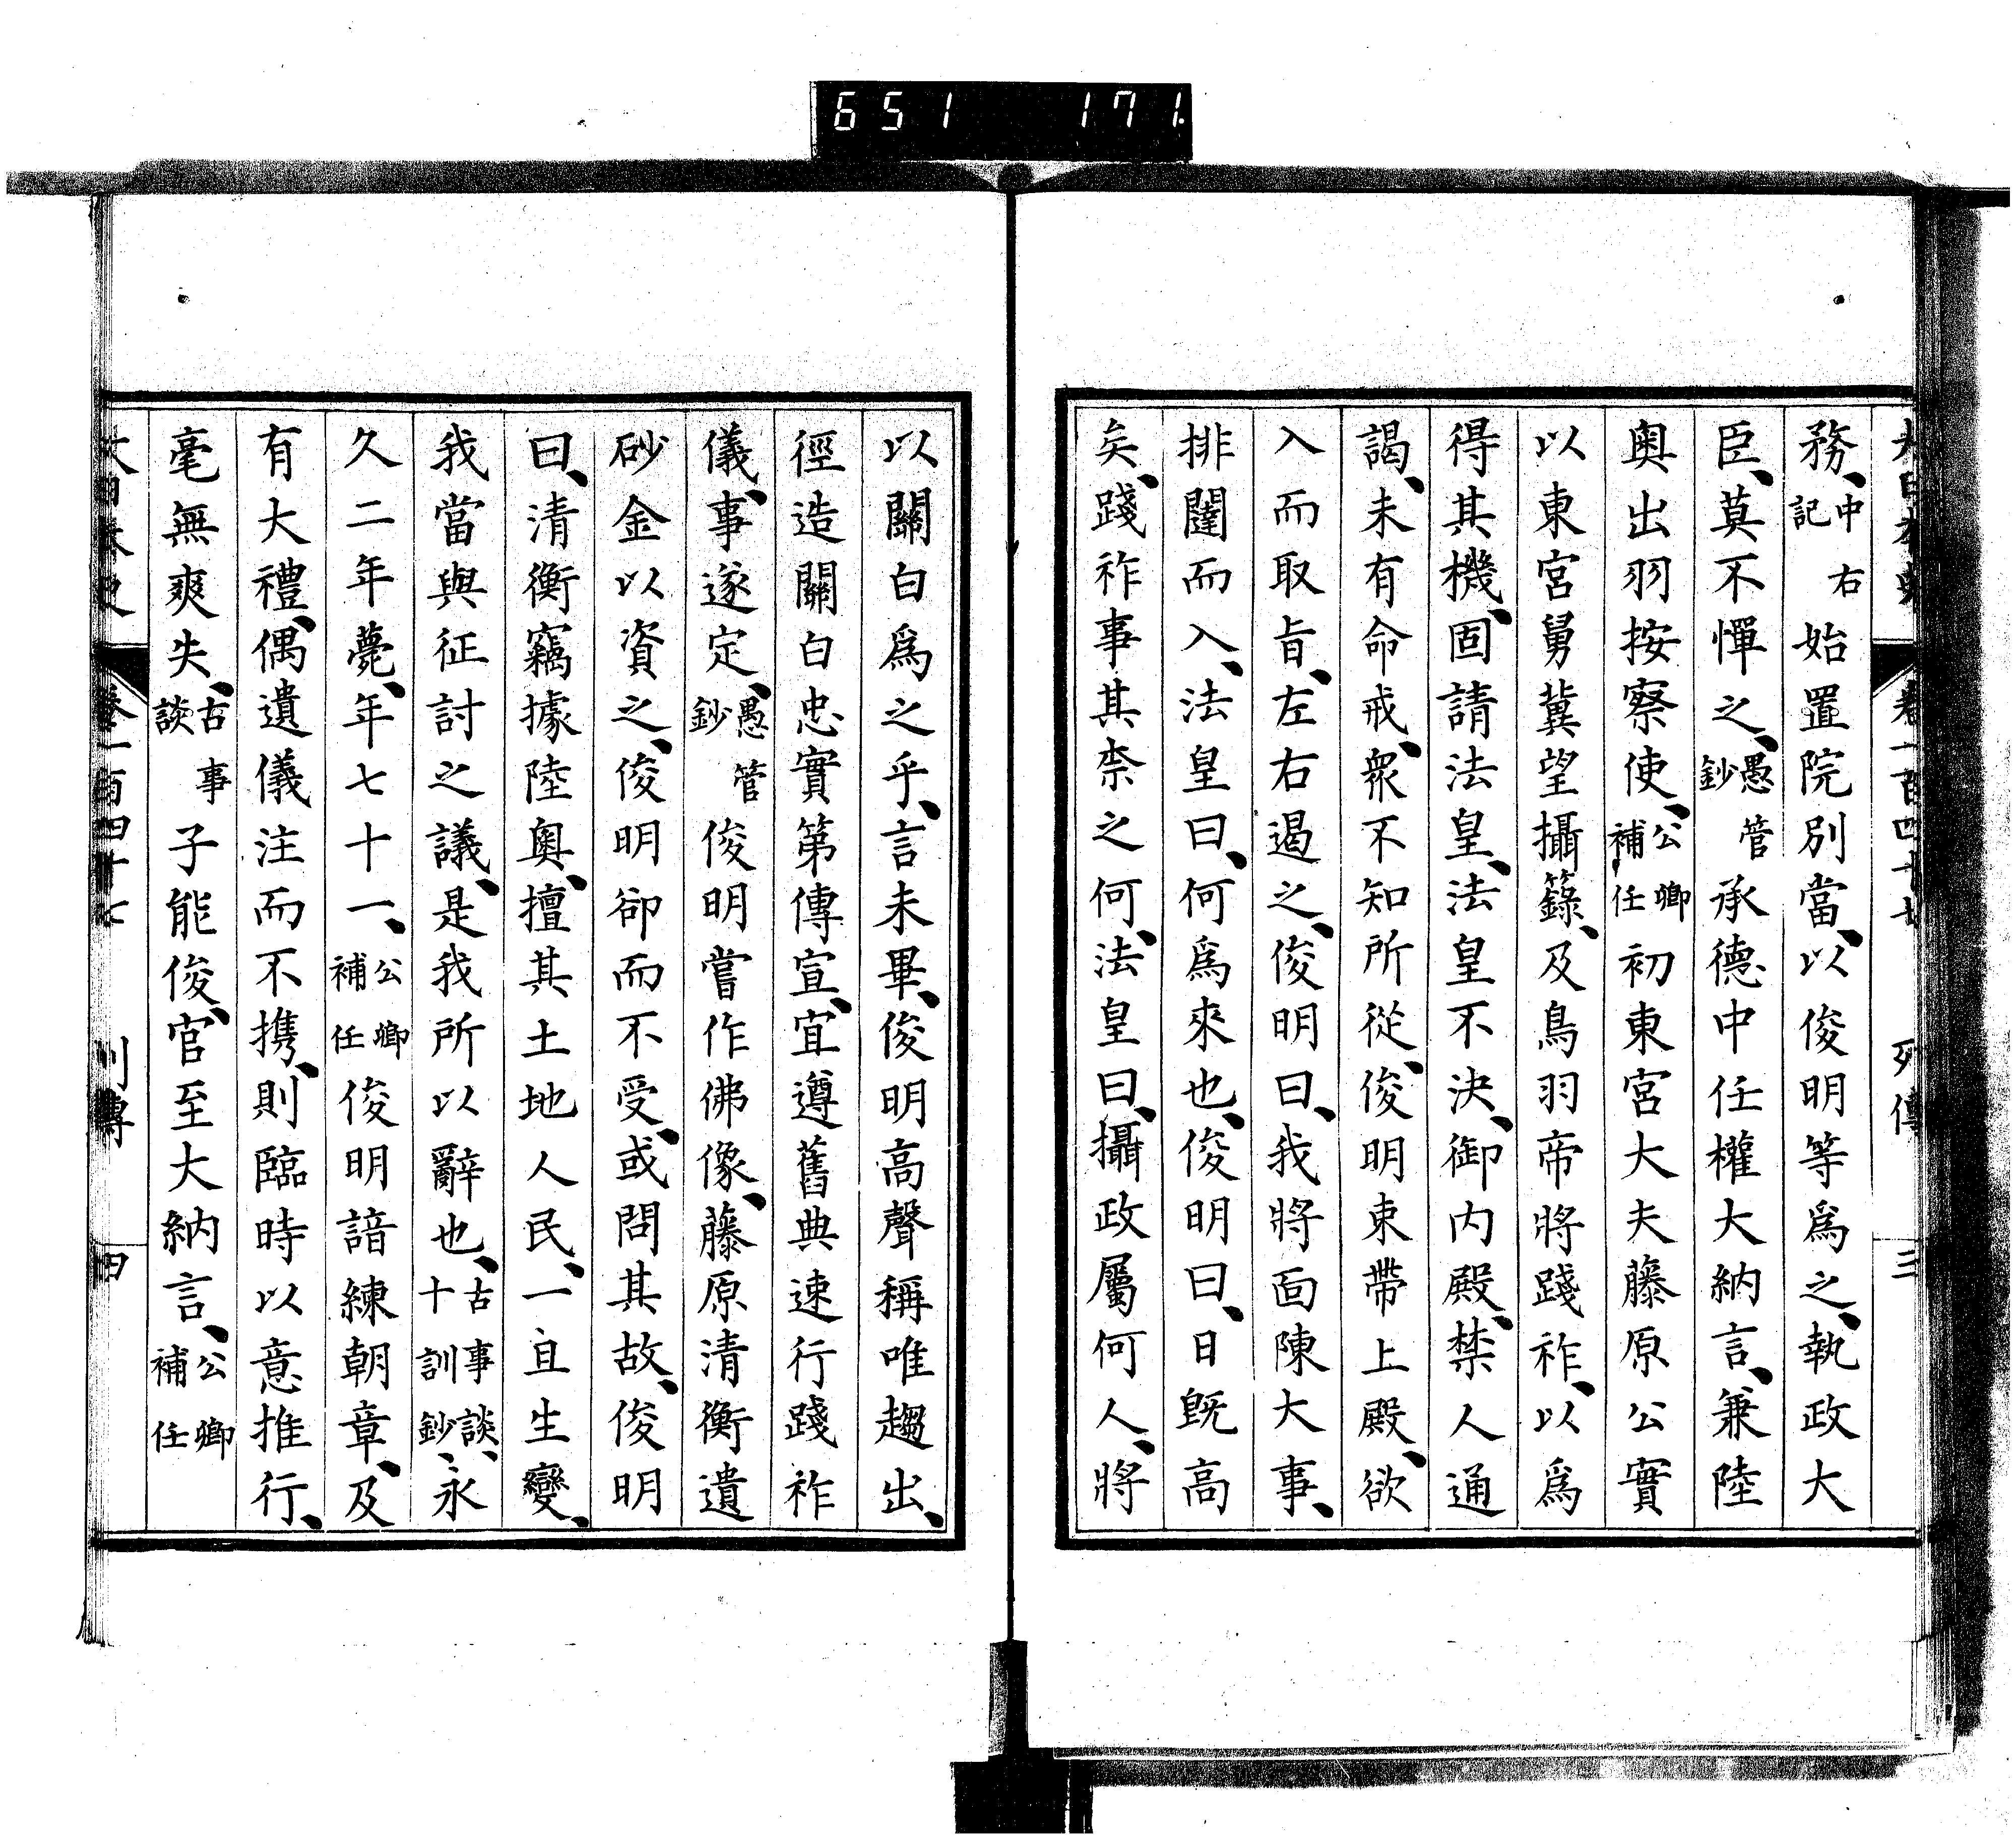 651 171.
大日本史 卷一百四十七 列傳 三
務、中右記始置院別當、以俊明等爲之、執政大
臣、莫不憚之、愚管鈔承德中任權大納言、兼陸
奧出羽按察使、公卿補任初東宮大夫藤原公實
以東宮舅冀望攝籙、及鳥羽帝將踐祚、以爲
得其機、固請法皇、法皇不決、御内殿、禁人通
謁、未有命戒、衆不知所從、俊明束帶上殿、欲
入而取旨、左右遏之、俊明曰、我將面陳大事、
排闥而入、法皇曰、何爲來也、俊明曰、日既高
矣、踐祚事其柰之何、法皇曰、攝政屬何人、將
以關白爲之乎、言未畢、俊明高聲稱唯趨出、
徑造關白忠實第傳宣、宜遵舊典速行踐祚
儀、事遂定、愚管鈔俊明嘗作佛像、藤原清衡遺
砂金以資之、俊明卻而不受、或問其故、俊明
曰、清衡竊據陸奧、擅其土地人民、一旦生變、
我當與征討之議、是我所以辭也、古事談、十訓鈔、永
久二年薨、年七十一、公卿補任俊明諳練朝章、及
有大禮、偶遺儀注而不携、則臨時以意推行、
毫無爽失、古事談子能俊、官至大納言、公卿補任
大日本史 卷一百四十七 列傳 四